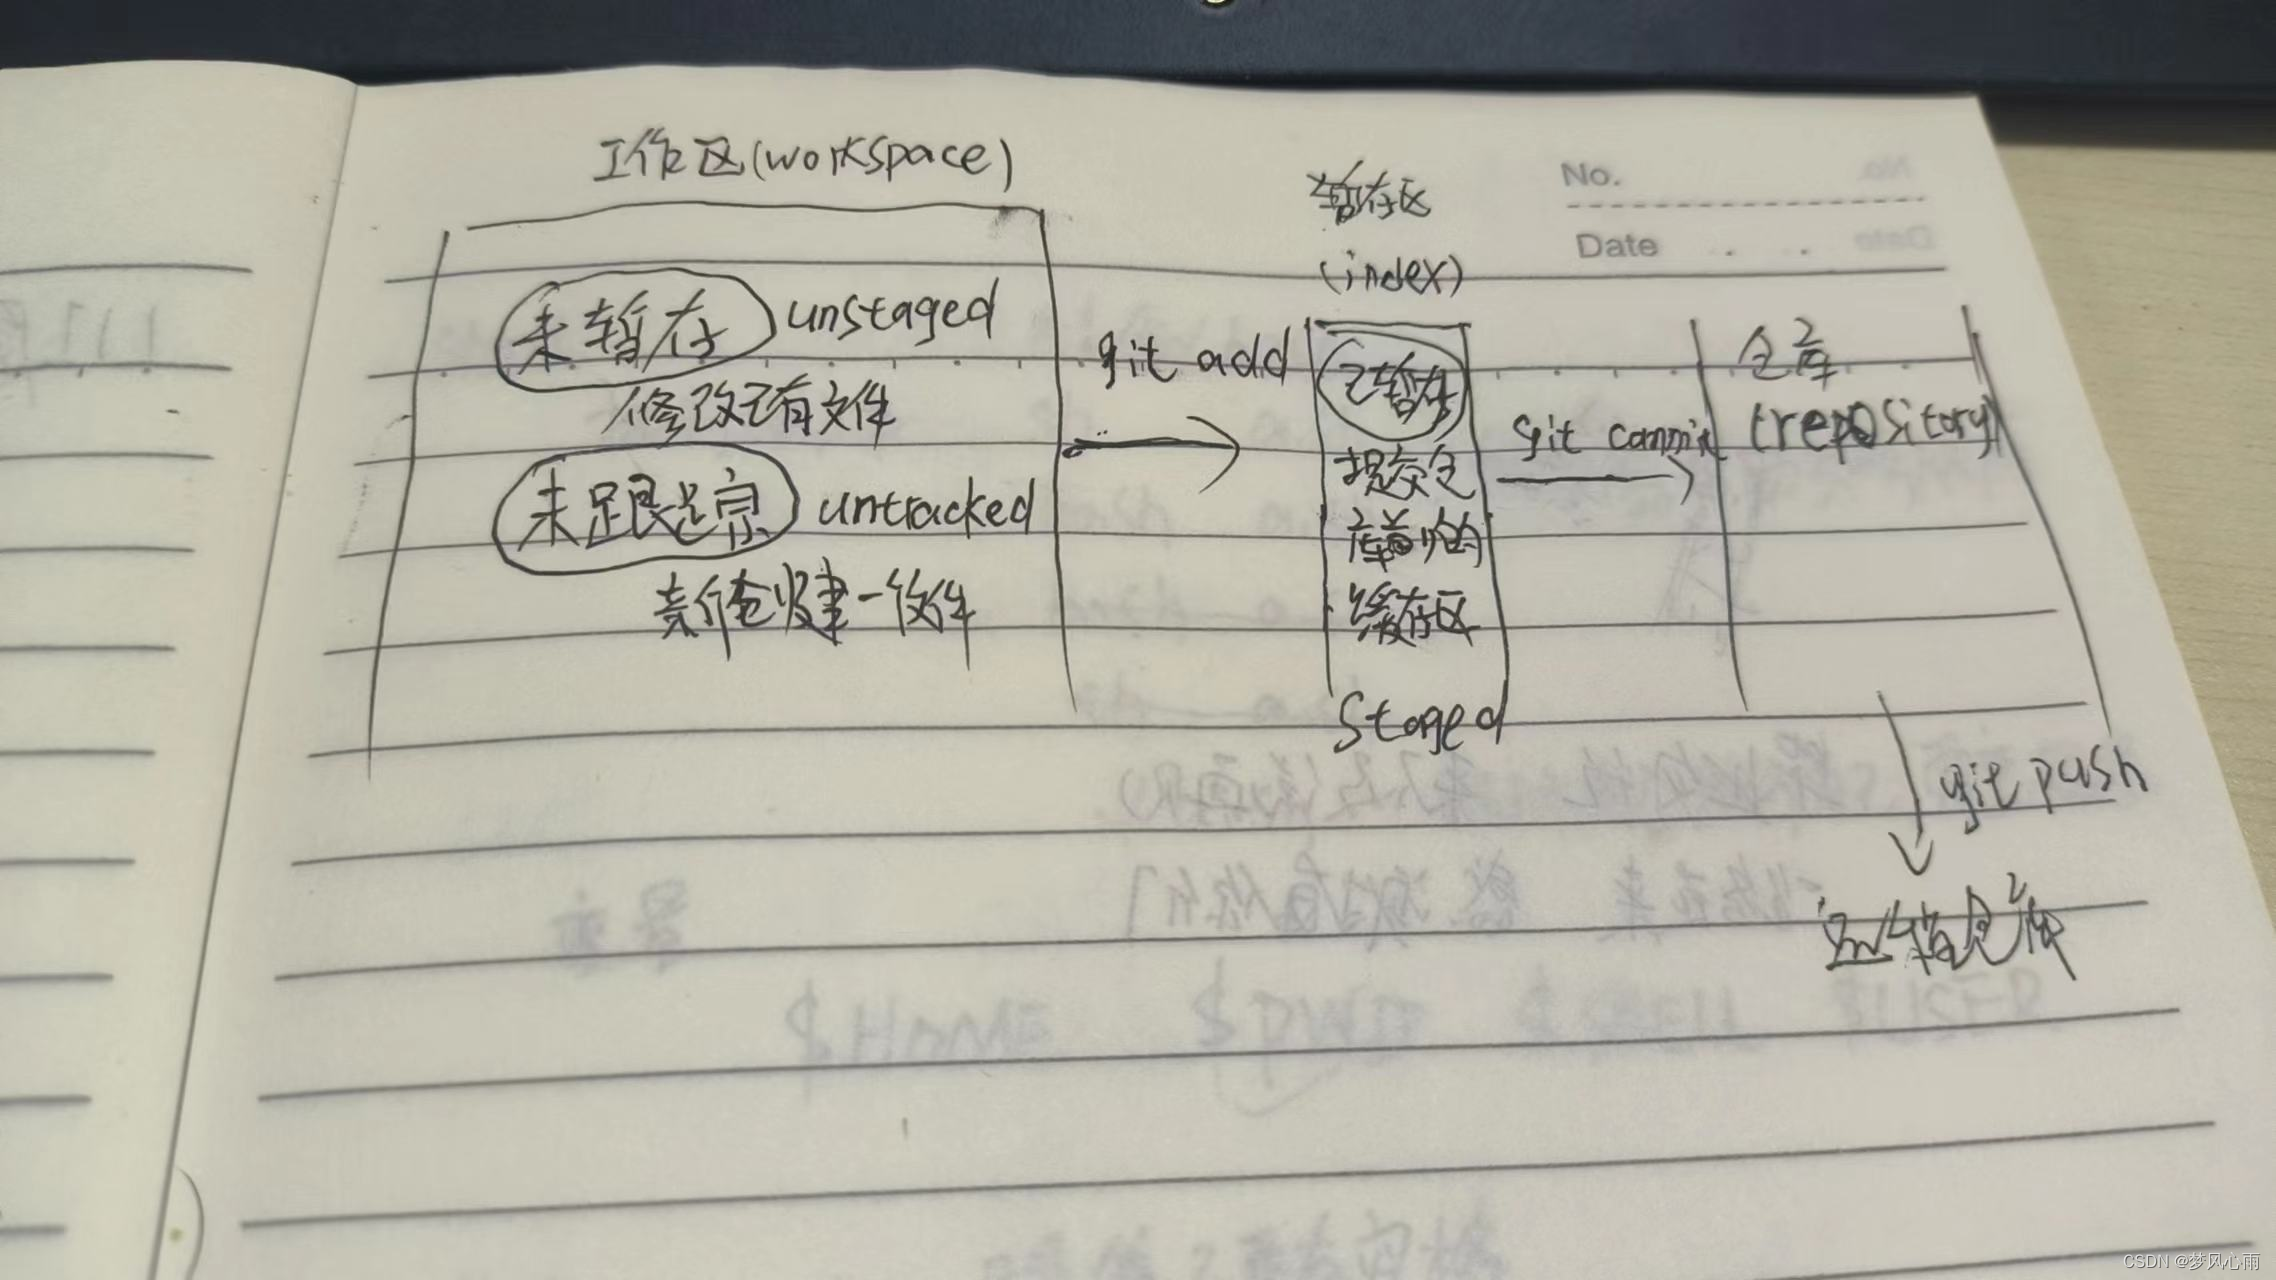 工作区(workspace)
暂存区
(index)
No.
Date
未暂存 unstaged
修改已有文件
git add
已暂存
仓库
(repository)
git commit
未跟踪 untracked
提交仓
库前的
缓存区
文件
staged
git push
远端仓库
CSDN @梦风心雨